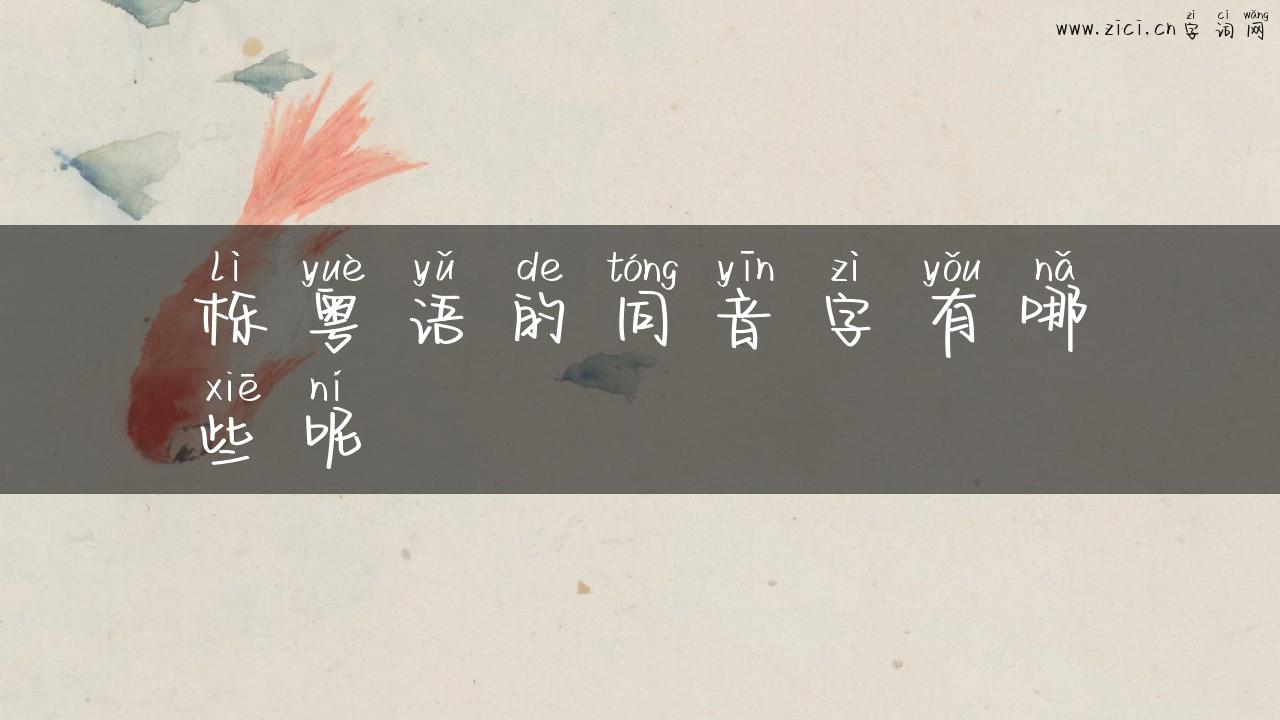 zì cí wǎng
www.zici.cn 字词网
lì yuè yǔ de tóng yīn zì yǒu nǎ
栎粤语的同音字有哪
xiē ní
些呢